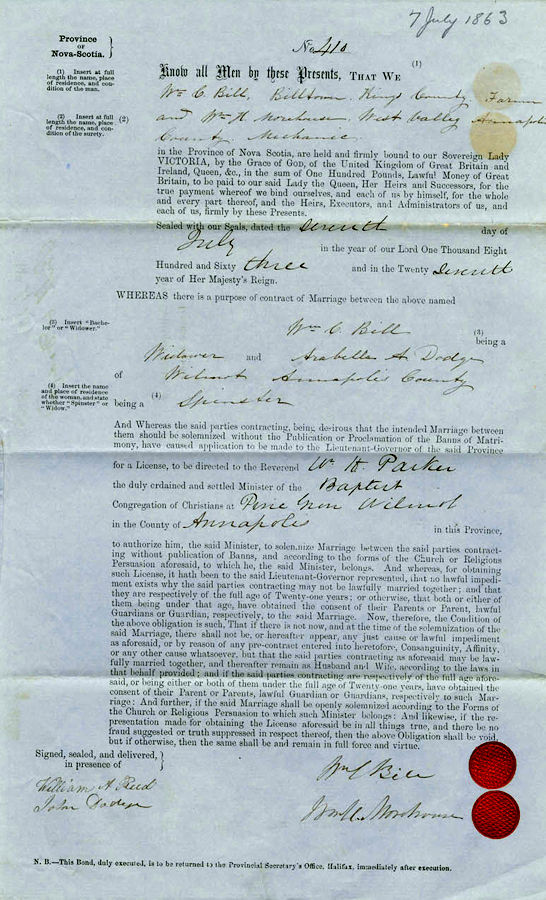 7 July 1863
Province
OF
Nova-Scotia.
No 410
(1) Insert at full
length the name, place
of residence, and con-
dition of the man.
Know all Men by these Presents, THAT WE (1)
Wm C. Bill, Billtown, Kings County Farmer
(2) Insert at full
length the name, place
of residence, and con-
dition of the surety.
(2) and Wm H. Morehouse, West Valley Annapolis
County Mechanic
in the Province of Nova Scotia, are held and firmly bound to our Sovereign Lady
VICTORIA, by the Grace of GOD, of the United Kingdom of Great Britain and
Ireland, Queen, &c., in the sum of One Hundred Pounds, Lawful Money of Great
Britain, to be paid to our said Lady the Queen, Her Heirs and Successors, for the
true payment whereof we bind ourselves, and each of us by himself, for the whole
and every part thereof, and the Heirs, Executors, and Administrators of us, and
each of us, firmly by these Presents.
Sealed with our Seals, dated the seventh day of
July in the year of our Lord One Thousand Eight
Hundred and Sixty three and in the Twenty Seventh
year of Her Majesty's Reign.
WHEREAS there is a purpose of contract of Marriage between the above named
(3) Insert "Bache-
lor" or "Widower."
Wm C. Bill (3)
being a
Widower and Arabella A. Dodge
of Wilmot Annapolis County
(4) Insert the name
and place of residence
of the woman, and state
whether "Spinster" or
"Widow."
being a (4) Spinster
And Whereas the said parties contracting, being desirous that the intended Marriage between
them should be solemnized without the Publication or Proclamation of the Banns of Matri-
mony, have caused application to be made to the Lieutenant-Governor of the said Province
for a License, to be directed to the Reverend W. H. Parker
the duly ordained and settled Minister of the Baptist
Congregation of Christians at Pine Grove Wilmot
in the County of Annapolis in this Province,
to authorize him, the said Minister, to solemnize Marriage between the said parties contract-
ing without publication of Banns, and according to the forms of the Church or Religious
Persuasion aforesaid, to which he, the said Minister, belongs. And whereas, for obtaining
such License, it hath been to the said Lieutenant-Governor represented, that no lawful impedi-
ment exists why the said parties contracting may not be lawfully married together; and that
they are respectively of the full age of Twenty-one years; or otherwise, that both or either of
them being under that age, have obtained the consent of their Parents or Parent, lawful
Guardians or Guardian, respectively, to the said Marriage. Now, therefore, the Condition of
the above obligation is such, That if there is not now, and at the time of the solemnization of the
said Marriage, there shall not be, or hereafter appear, any just cause or lawful impediment
as aforesaid, or by reason of any pre-contract entered into heretofore, Consanguinity, Affinity,
or any other cause whatsoever, but that the said parties contracting as aforesaid may be law-
fully married together, and thereafter remain as Husband and Wife, according to the laws in
that behalf provided; and if the said parties contracting are respectively of the full age afore-
said, or being either or both of them under the full age of Twenty-one years, have obtained the
consent of their Parent or Parents, lawful Guardian or Guardians, respectively to such Mar-
riage: And further, if the said Marriage shall be openly solemnized according to the Forms of
the Church or Religious Persuasion to which such Minister belongs: And likewise, if the re-
presentation made for obtaining the License aforesaid be in all things true, and there be no
fraud suggested or truth suppressed in respect thereof, then the above Obligation shall be void,
but if otherwise, then the same shall be and remain in full force and virtue.
Signed, sealed, and delivered,
in presence of
William A. Reed
John Dodge
Wm C Bill
Wm H. Morehouse
N. B.—This Bond, duly executed, is to be returned to the Provincial Secretary's Office, Halifax, immediately after execution.